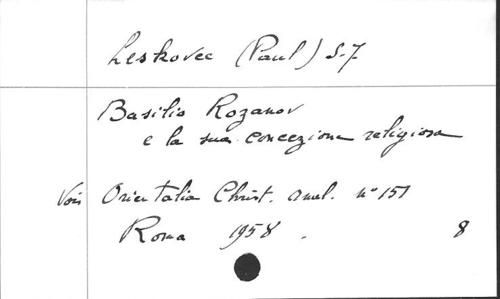 Leskovec (Paul) S.J.
Basilio Rozanov
e la sua concezione religiosa
Voir Orientalia Christ. anal. n° 151
Roma 1958. 8